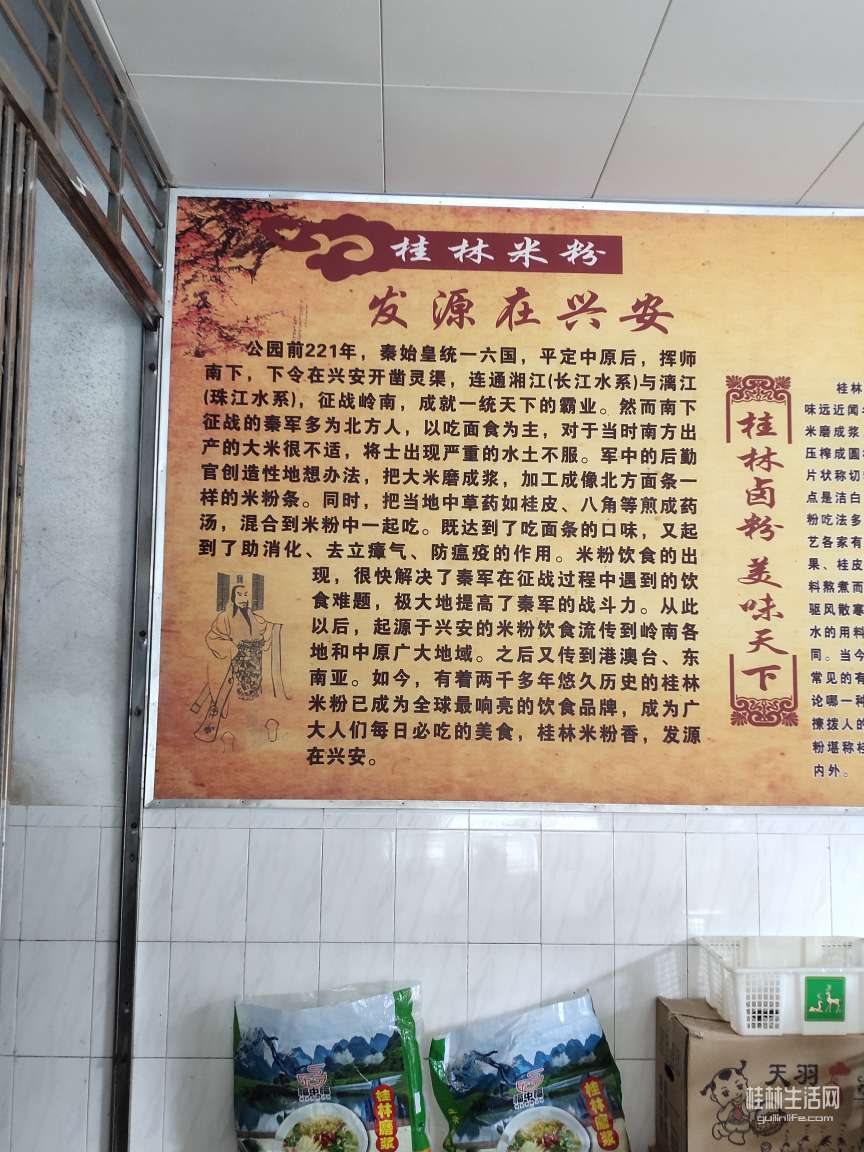 桂林米粉
发源在兴安
公园前221年，秦始皇统一六国，平定中原后，挥师
南下，下令在兴安开凿灵渠，连通湘江(长江水系)与漓江
(珠江水系)，征战岭南，成就一统天下的霸业。然而南下
征战的秦军多为北方人，以吃面食为主，对于当时南方出
产的大米很不适，将士出现严重的水土不服。军中的后勤
官创造性地想办法，把大米磨成浆，加工成像北方面条一
样的米粉条。同时，把当地中草药如桂皮、八角等煎成药
汤，混合到米粉中一起吃。既达到了吃面条的口味，又起
到了助消化、去立瘴气、防瘟疫的作用。米粉饮食的出
现，很快解决了秦军在征战过程中遇到的饮
食难题，极大地提高了秦军的战斗力。从此
以后，起源于兴安的米粉饮食流传到岭南各
地和中原广大地域。之后又传到港澳台、东
南亚。如今，有着两千多年悠久历史的桂林
米粉已成为全球最响亮的饮食品牌，成为广
大人们每日必吃的美食，桂林米粉香，发源
在兴安。
桂林卤粉 美味天下
桂林
味远近闻
米磨成浆
压榨成圆
片状称切
点是洁白
粉吃法多
艺各家有
果、桂皮
料熬煮而
驱风散寒
水的用料
同。当今
常见的有
论哪一种
揀拨人的
粉堪称桂
内外。
桂林磨浆
桂林磨浆
天羽
桂林生活网
guilinlife.com